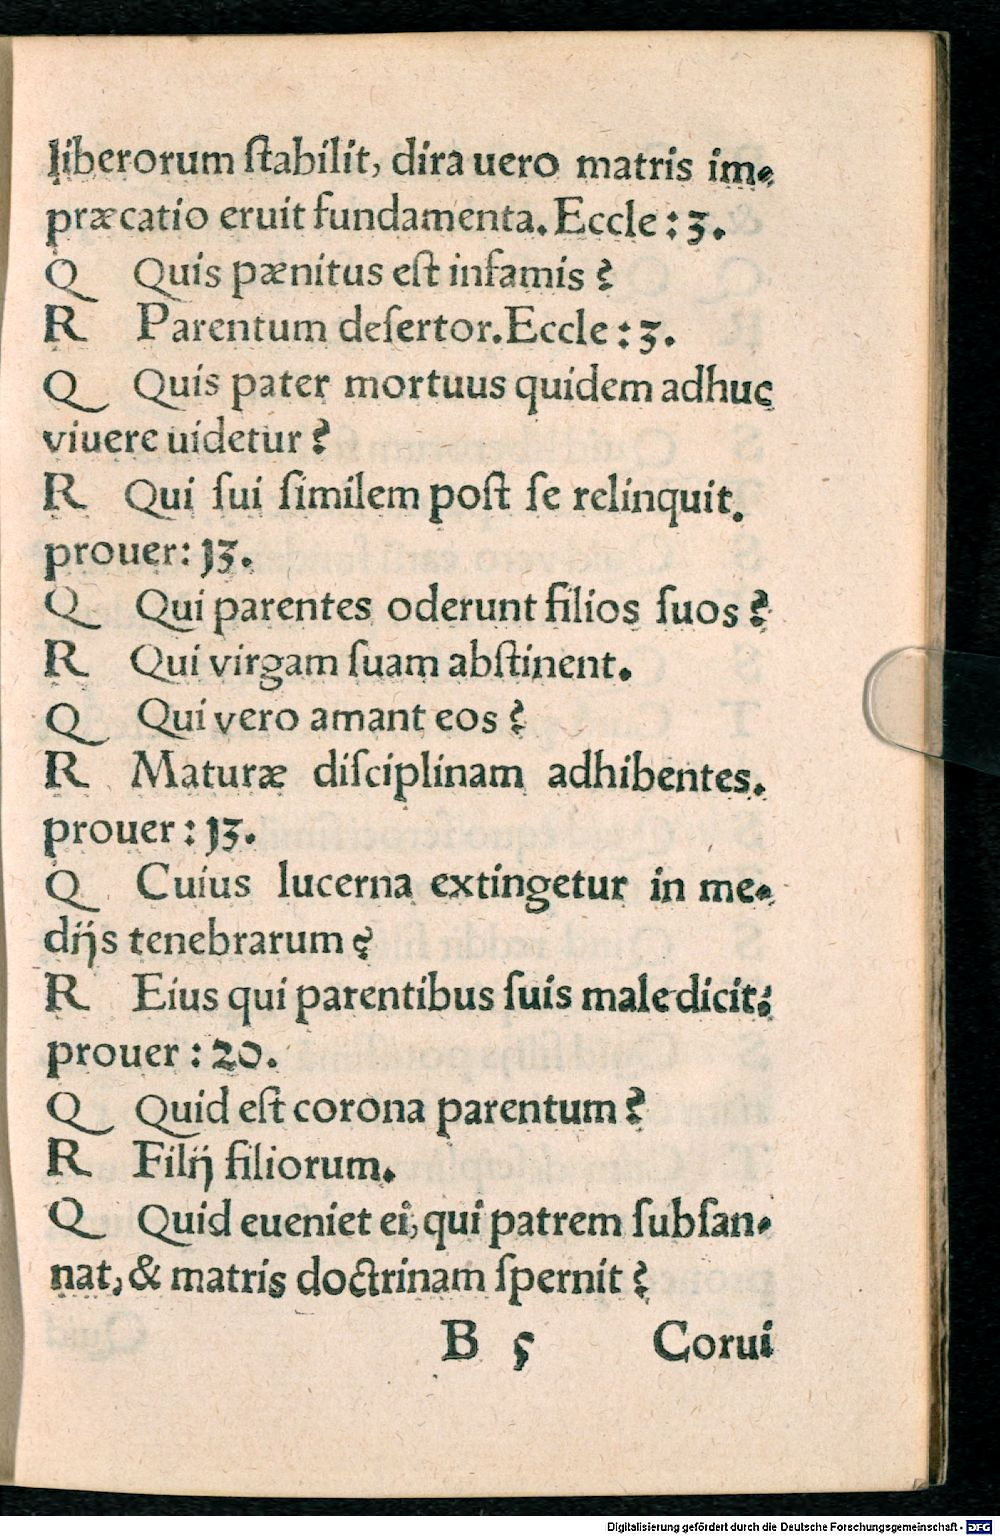 liberorum ſtabilit, dira uero matris im-
præcatio eruit fundamenta. Eccle : 3.
Q Quis pænitus eſt infamis ?
R Parentum deſertor. Eccle : 3.
Q Quis pater mortuus quidem adhuc
viuere uidetur ?
R Qui ſui ſimilem poſt ſe relinquit.
prouer: 13.
Q Qui parentes oderunt filios ſuos ?
R Qui virgam ſuam abſtinent.
Q Qui vero amant eos ?
R Maturæ diſciplinam adhibentes.
prouer : 13.
Q Cuius lucerna extingetur in me-
dijs tenebrarum ?
R Eius qui parentibus ſuis maledicit:
prouer : 20.
Q Quid eſt corona parentum ?
R Filij filiorum.
Q Quid eueniet ei, qui patrem ſubſan-
nat, & matris doctrinam ſpernit ?
B 5 Corui
Digitalisierung gefördert durch die Deutsche Forschungsgemeinschaft - DFG